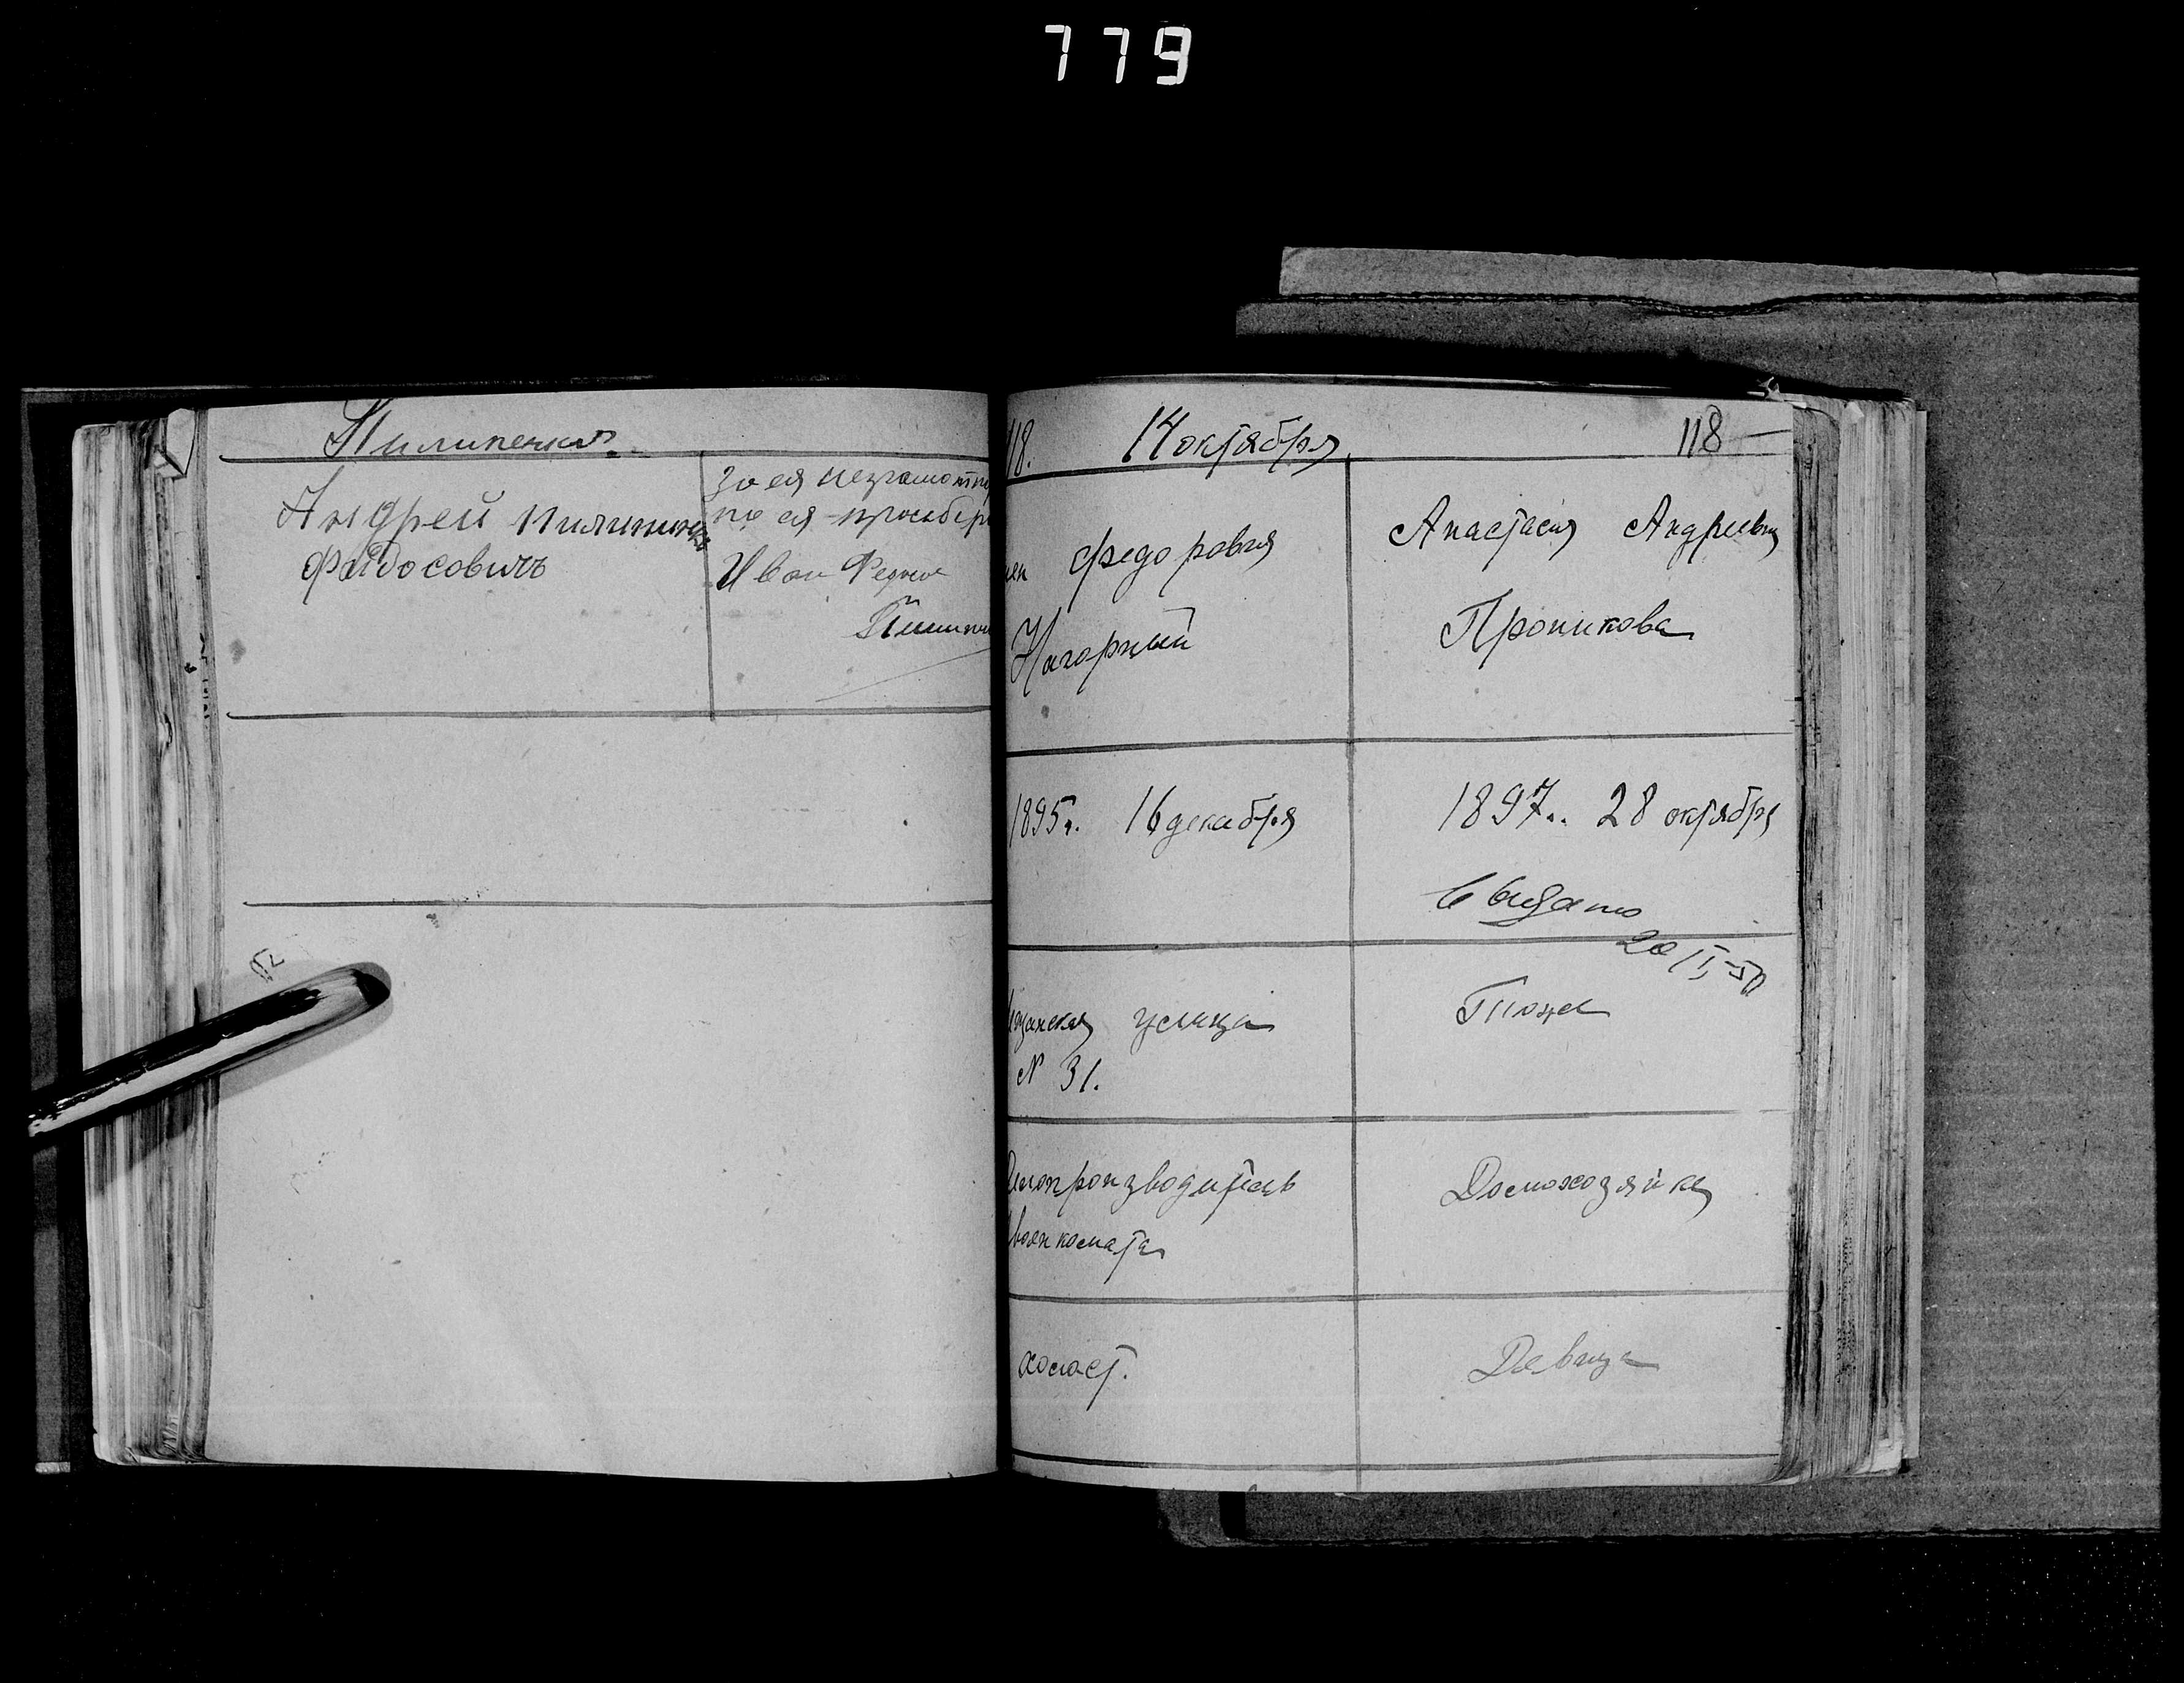 779
Пилипенко
Андрей Пилипенко
Фадосовичъ
За ея неграмотн
по ея просьбе р
Иван Федос
Пилип
118. 14 октября 118
Федоровия
Нагорный
Анастасия Андреевн
Проникова
1895 г. 16 декабря
1897.. 28 октября
выдано
20/I-50
улица
N 31.
Тоже
Делопроизводитель
военкомата
Домохозяйка
холост.
Девица